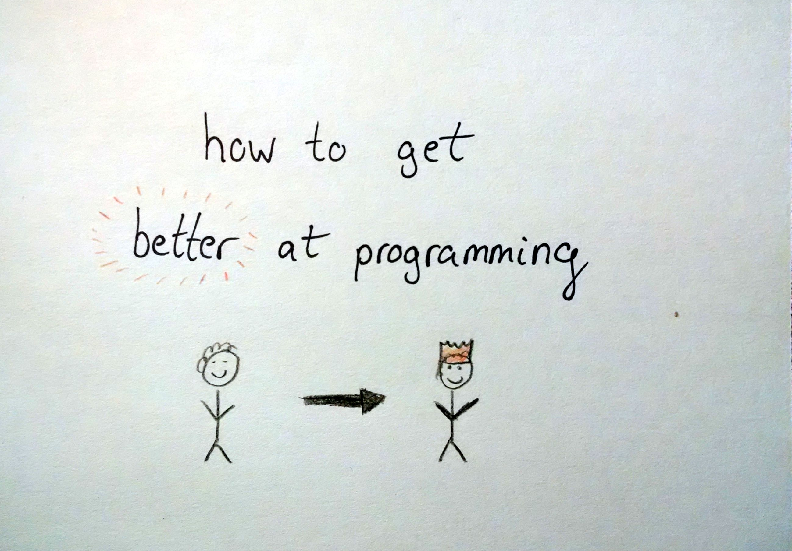 how to get
better at programming